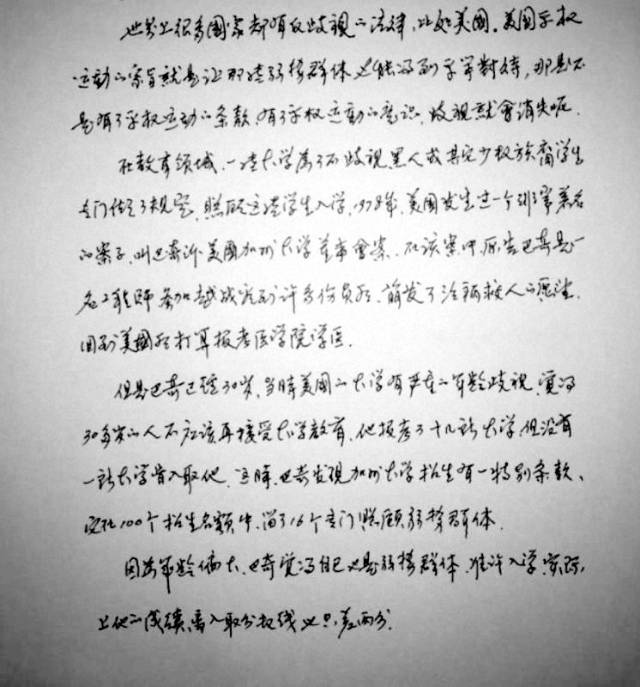 世界上很多国家都有反歧視的法律,比如美国。美国平权
运动的宗旨就是让那些弱势群体也能得到平等對待,那是不
是有了平权运动的条款,有了平权运动的意识,歧視就會消失呢.
在教育领域,一些大学為了不歧視黑人或其它少数族裔学生
专门作了规定,照顾这些学生入学,1978年,美國发生过一个非常著名
的案子,叫巴奇诉美國加州大学董事會案.在该案中,原告巴奇是一
名工程师参加越战看到许多伤员后,萌发了治病救人的愿望.
回到美國后打算报考医学院学医.
但是巴奇已经30岁,当時美国的大学有严重的年龄歧視,覚得
30多岁的人不应该再接受大学教育,他报考了十几所大学,但没有
一所大学肯入取他.这時,巴奇发现加州大学招生有一特别条款、
它在100个招生名额中,留了16个专门照顾弱势群体.
因為年龄偏大,巴奇覚得自己也是弱势群体,准许入学,实际
上他的成績离入取分数线也只差两分.